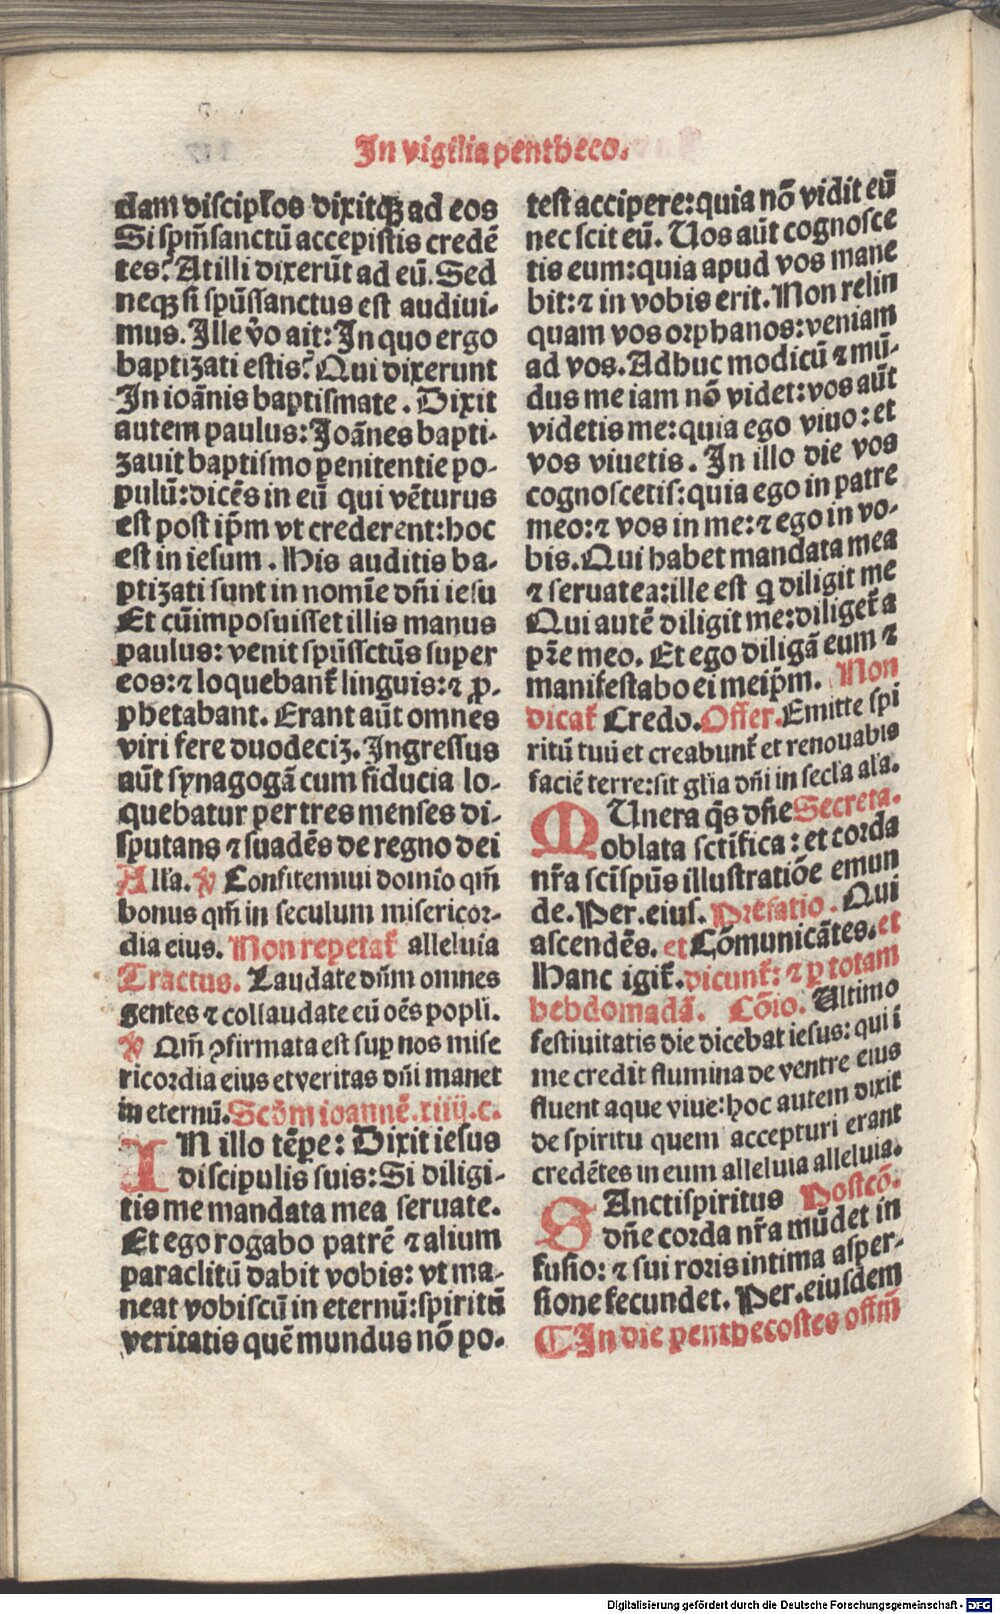 In vigilia pentheco.
dam discipłos dixitqȝ ad eos
Si spm̄sanctū accepistis credē
tes? At illi dixerūt ad eū. Sed
neqȝ si spūssanctus est audiui-
mus. Ille ṽo ait: In quo ergo
baptizati estis? Qui dixerunt
In ioānis baptismate. Dixit
autem paulus: Joānes bapti-
zauit baptismo penitentie po-
pulū: dicēs in eū qui vēturus
est post ip̄m vt crederent: hoc
est in iesum. His auditis ba-
ptizati sunt in nomīe dn̄i iesu
Et cū imposuisset illis manus
paulus: venit spūssctūs super
eos: ⁊ loquebant᷑ linguis: ⁊ ꝓ-
phetabant. Erant aūt omnēs
viri fere duodecīz. Ingressus
aūt synagogā cum fiducia lo-
quebatur per tres menses di-
sputans ⁊ suadēs de regno dei
Alła. ℣ Confitemini domīo qm̄
bonus qm̄ in seculum misericor-
dia eius. Non repetat᷑ alleluia
Tractus. Laudate dn̄m omnes
gentes ⁊ collaudate eū oēs popłi.
℣ Qm̄ ꝯfirmata est suꝑ nos mise
ricordia eius et veritas dn̄i manet
in eternū. Scḋm ioannē. xiiij. c.
IN illo tēpe: Dixit iesus
discipulis suis: Si diligi-
tis me mandata mea seruate.
Et ego rogabo patrē ⁊ alium
paraclitū dabit vobis: vt ma-
neat vobiscū in eternū: spiritū
veritatis quē mundus nō po-
test accipere: quia nō vidit eū
nec scit eū. Uos aūt cognosce
tis eum: quia apud vos mane
bit: ⁊ in vobis erit. Non relin
quam vos orphanos: veniam
ad vos. Adhuc modicū ⁊ mū-
dus me iam nō videt: vos aūt
videtis me: quia ego viuo: et
vos viuetis. In illo die vos
cognoscetis: quia ego in patre
meo: ⁊ vos in me: ⁊ ego in vo-
bis. Qui habet mandata mea
⁊ seruat ea: ille est q diligit me
Qui autē diligit me: diliget᷑ a
pr̄e meo. Et ego diligā eum ⁊
manifestabo ei meip̄m. Non
dicat᷑ Credo. Offer. Emitte spi
ritū tuū et creabunt᷑ et renouabis
faciē terre: sit głia dn̄i in secła ała.
MUnera q̄s dn̄e Secreta.
oblata sctīfica: et corda
nr̄a sctīspūs illustratiōe emun
de. Per. eius. Prefatio. Qui
ascendēs. et Cōmunicātes. et
Hanc igit᷑. dicunt᷑: ⁊ ꝑ totam
hebdomadā. Cōio. Ultimo
festiuitatis die dicebat iesus: qui ī
me credit flumina de ventre eius
fluent aque viue: hoc autem dixit
de spiritu quem accepturi erant
credētes in eum alleluia alleluia.
SAncti spiritus Postcō.
dn̄e corda nr̄a mūdet in
fusio: ⁊ sui roris intima asper-
sione fecundet. Per. eiusdem
¶ In die penthecostes offm̄
Digitalisierung gefördert durch die Deutsche Forschungsgemeinschaft - DFG